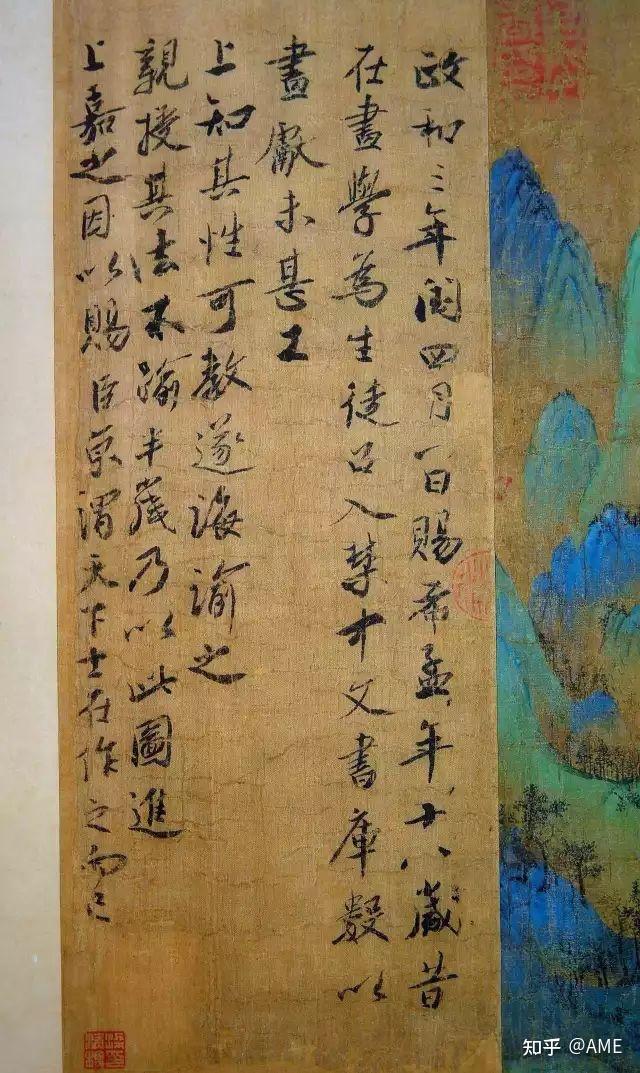 政和三年閏四月一日賜希孟年十八歲昔
在畫學為生徒召入禁中文書庫數以
畫獻未甚工
上知其性可教遂誨諭之
親授其法不踰半歲乃以此圖進
上嘉之因以賜臣京謂天下士在作之而已
知乎 @AME